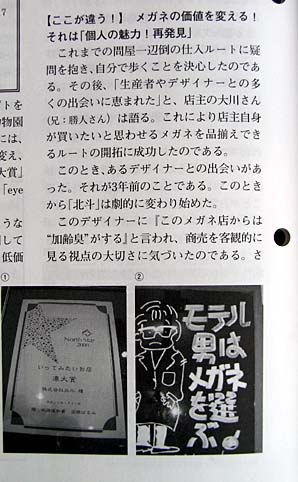 【ここが違う！】　メガネの価値を変える！
それは「個人の魅力！再発見」
　これまでの問屋一辺倒の仕入ルートに疑
問を抱き、自分で歩くことを決心したのであ
る。その後、「生産者やデザイナーとの多
くの出会いに恵まれた」と、店主の大川さん
（兄：勝人さん）は語る。これにより店主自身
が買いたいと思わせるメガネを品揃えでき
るルートの開拓に成功したのである。
　このとき、あるデザイナーとの出会いがあ
った。それが3年前のことである。このとき
から「北斗」は劇的に変わり始めた。
　このデザイナーに『このメガネ店からは
“加齢臭”がする』と言われ、商売を客観的に
見る視点の大切さに気づいたのである。さ
7
トを
物園
には、
変え、
大賞」
「eye
うな
して
低価
①
②
North Star
いってみたいお店
準大賞
モテル
男は
メガネ
を選
ぶ！